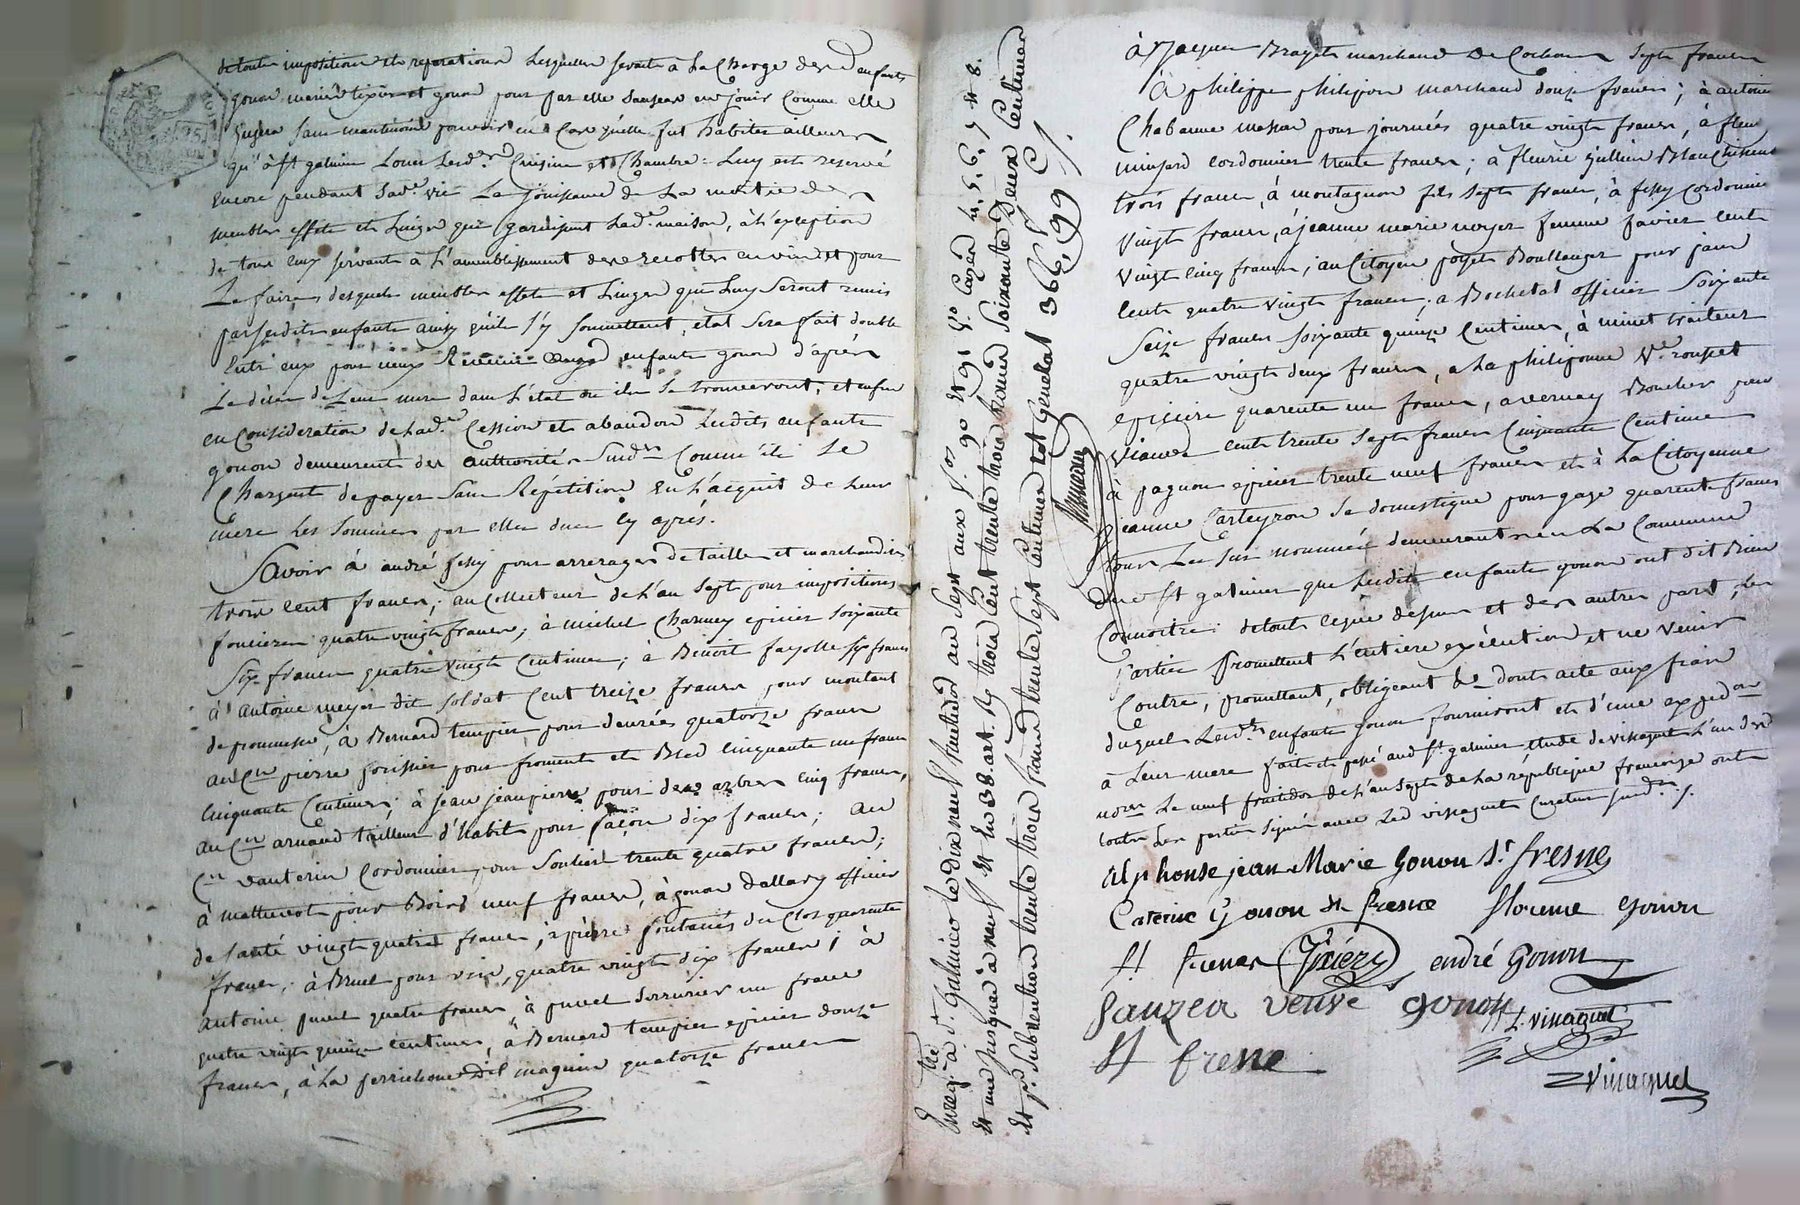 detoutes impositions et reparations lesquelles seront a la charge desd enfants
gonon mariés tixier et gonon pour par elle sauzea en jouir comme elle
jugera sans neantmoins pouvoir en cas qu'elle fut habiter ailleurs
qu'à st galmier louer lesd.es cuisine et chambre : luy est reservé
encore pendant sad.e vie la jouissance de la moitié des
meubles effets et linges qui garnissent lad.e maison, à l'exception
de tous ceux servants à l'ameublissement des recoltes en vin et pour
le faire desquels meubles effets et linges qui luy seront remis
par sesdits enfants ainsy qu'ils s'y soummettent, etat sera fait double
entr'eux pour iceux revenir auxd enfants gonon d'après
le décès de leur mere dans l'état où ils se trouveront, et enfin
en consideration de lad.e cession et abandon lesdits enfants
gonon demeurent des authorités susd.es comme ils se
chargent de payer sans répétition en l'acquit de leur
mere les sommes par elles dues cy après.
Savoir à andré fessy pour arrerages de taille et marchandises
trois cent francs; au collecteur de l'an sept pour impositions
foncieres quatre vingt francs; à michel charmey epicier soixante
six francs quatre vingt centimes; à Benoit fayolle six francs
à antoine meyer dit soldat cent treize francs pour montant
de promesse, à Bernard tempier pour denrées quatorze francs
au c.en pierre pour froment et Bled cinquante un francs
cinquante centimes; à jean jeanpierre pour des arbres cinq francs,
au c.en arnaud tailleur d'habits pour façon dix francs; au
c.en vauterin cordonnier pour souliers trente quatre francs;
à mathevot pour Bois neuf francs, à gonon dallary officier
de santé vingt quatre francs, à pierre fontanés du clos quarente
francs, à Bruel pour vin, quatre vingt dix francs; à
antoine quatre francs, à serrurier un franc
quatre vingt quinze centimes, à Bernard tempier epicier douze
francs, à la magnin quatorze francs
Enreg.tré à s.t Galmier le dix neuf fructidor an sept aux f.os 90 et 91 r.o cazes 4, 5, 6, 7 et 8.
et une jusqu'à neuf et en 38 art. reçu trois cent trente trois francs soixante deux centimes
et p.r subvention trente trois francs trente sept centimes est général 366,f 99 c.
à jacques Brayet marchand de cochons sept francs
à philippe philipon marchand douze francs; à antoine
chabanne masson pour journées quatre vingt francs, à fleury
cordonnier trente francs; à fleurie jullien Blanchisseuse
trois francs, à montagnon fils sept francs, à fessy cordonnier
vingt francs, à jeanne marie noyer femme favier cent
vingt cinq francs, au citoyen poyet Boullanger pour pain
cent quatre vingt francs, à Bochetal officier soixante
seize francs soixante quinze centimes, à minet traiteur
quatre vingt deux francs, à la philiponne v.e rousset
epiciere quarente un francs, à vernay Boucher pour
viandes cent trente sept francs cinquante centimes
à pagnon epicier trente neuf francs et à la citoyenne
jeanne carteyron sa domestique pour gage quarente francs
tous les sus nommés demeurants en la commune
dud st galmier que lesdits enfants gonon ont dit bien
connoitre: detout ce que dessus et des autres parts, les
parties promettent l'entiere exécution et ne venir
contre, promettant, obligeant &a dont acte aux frais
duquel lesd.ts enfants gonon fourniront et d'une exped.on
à leur mere fait et passé aud st galmier étude de vissaguet l'un desd
no.res le neuf fructidor de l'an sept de la république françoise ont
toutes les parties signé avec led vissaguet curateur susd
alphonse jean Marie Gonon St fresne
Caterine Gonon st fresne florence gonon
st fresne Tixiéry andré Gonon
Sauzea veuve gonon
st fresne
vissaguet
Vissaguet